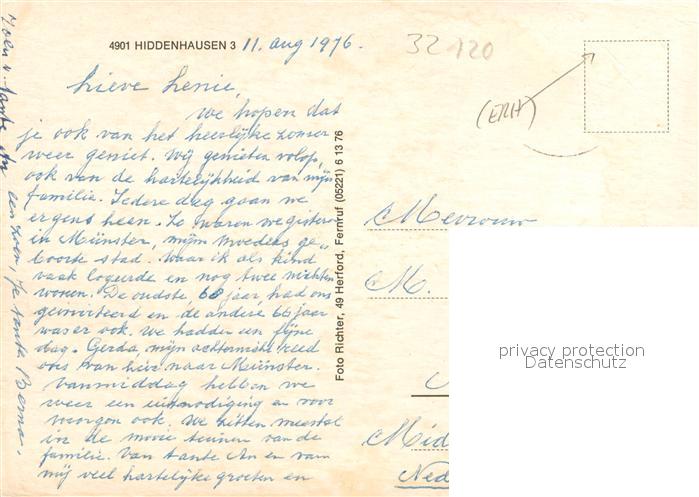 4901 HIDDENHAUSEN 3 11. aug 1976.
32 120
Lieve Lenie,
We hopen dat
je ook van het heerlijke zomer
weer geniet. Wij genieten volop,
ook van de hartelijkheid van mijn
familie. Iedere dag gaan we
ergens heen. Zo waren we gisteren
in Münster, mijn moeders ge„
boorte stad. Waar ik als kind
vaak logeerde en nog twee nichten
wonen. De oudste, jaar, had ons
geinviteerd en de andere 66 jaar
was er ook. We hadden een fijne
dag. Gerda, mijn achternicht reed
ons van hier naar Münster.
Vanmiddag hebben we
weer een uitnodiging en voor
morgen ook. We zitten meestal
in de mooie tuinen van de
familie. Van tante An en van
mij veel hartelijke groeten en
een zoen, je tante Berna.
tante An
Foto Richter, 49 Herford, Fernruf (05221) 6 13 76
(ERH)
Mevrouw
M.
Mid
Ned
privacy protection
Datenschutz